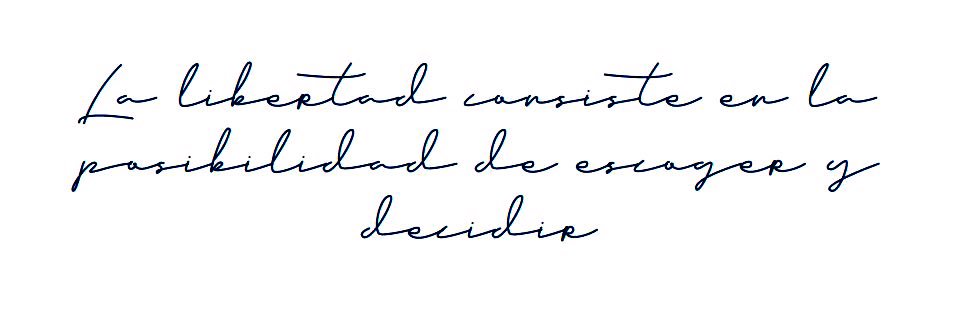 La libertad consiste en la
posibilidad de escoger y
decidir